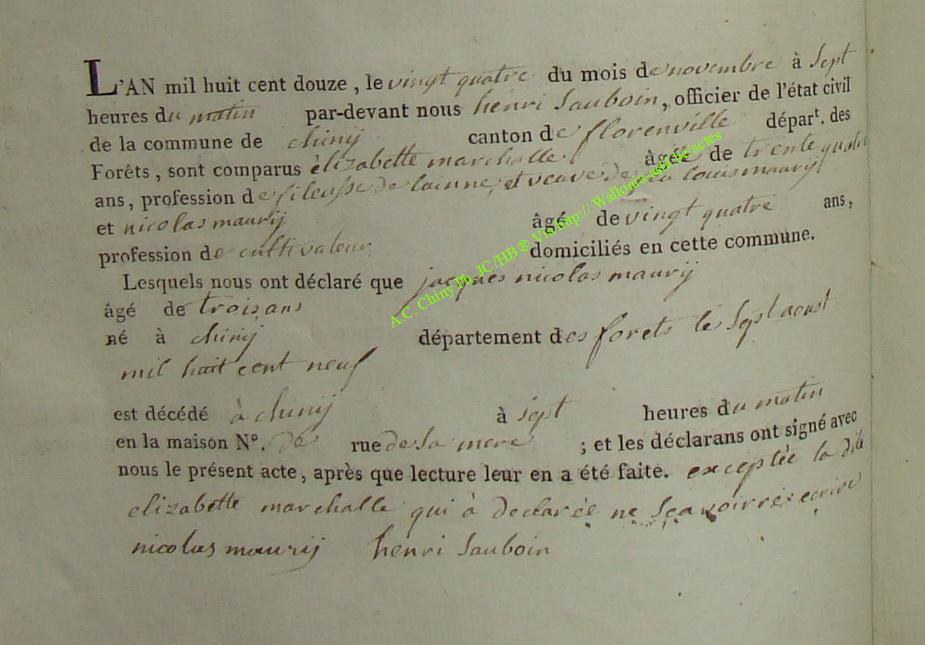 L'AN mil huit cent douze, le vingt quatre du mois de novembre à sept
heures du matin par-devant nous henri Sauboin, officier de l'état civil
de la commune de chinij canton de florenville départ. des
Forêts, sont comparus élizabette marchalle âgée de trente quatre
ans, profession de fileusse de lainne, et veuve de louis maurij
et nicolas maurij âgé de vingt quatre ans,
profession de cultivateur domiciliés en cette commune.
Lesquels nous ont déclaré que jacques nicolas maurij
âgé de trois ans
né à chinij département des forets les sept aoust
mil huit cent neuf
est décédé à chinij à sept heures du matin
en la maison N°. de rue de sa mere ; et les déclarans ont signé avec
nous le présent acte, après que lecture leur en a été faite. exceptée la dite
elizabette marchalle qui à declarée ne sçavoir ecrire
nicolas maurij henri Sauboin
A.C. Chiny Ph. JC /HB ® Via http:// Wallonie-